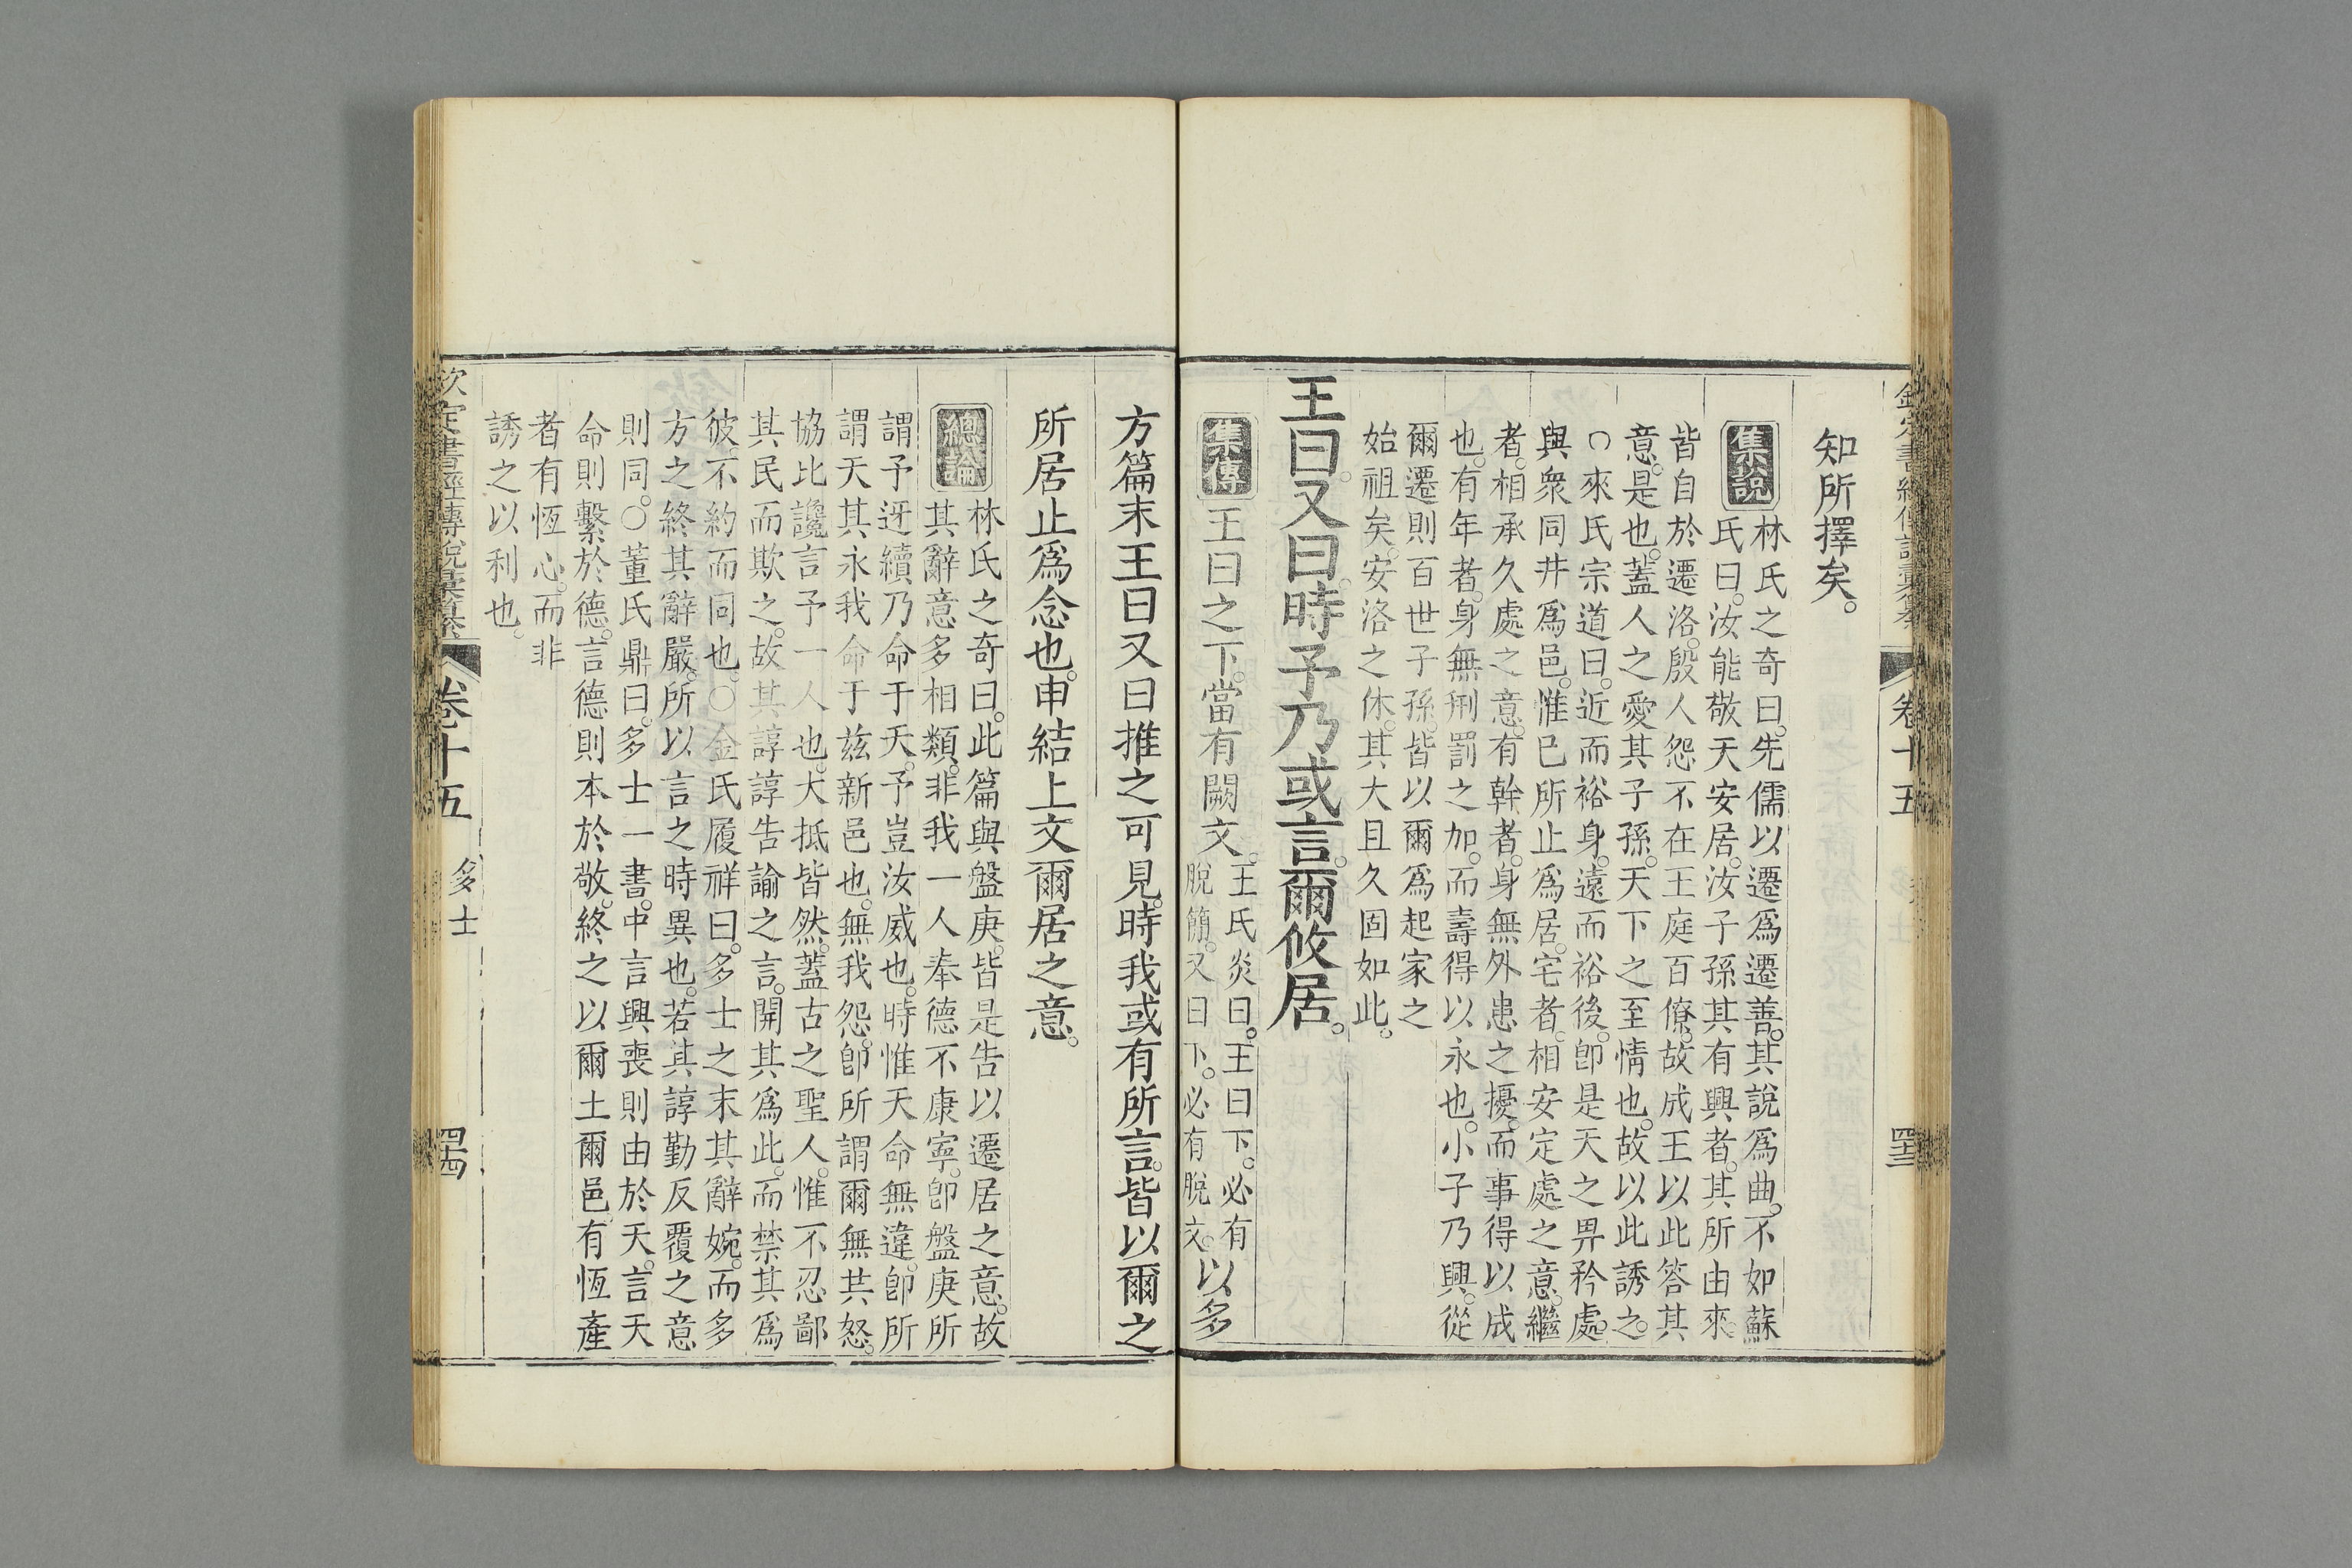 欽定書經傳說彙纂 卷十五 四三
知所擇矣。
集說 林氏之奇曰。先儒以遷爲遷善。其說爲曲。不如蘇
氏曰。汝能敬天安居。汝子孫其有興者。其所由來。
皆自於遷洛。殷人怨不在王庭百僚。故成王以此答其
意。是也。蓋人之愛其子孫。天下之至情也。故以此誘之。
○來氏宗道曰。近而裕身。遠而裕後。卽是天之畀矜處。
與衆同井爲邑。惟已所止爲居。宅者。相安定處之意。繼
者。相承久處之意。有幹者。身無外患之擾。而事得以成
也。有年者。身無刑罰之加。而壽得以永也。小子乃興。從
爾遷則百世子孫。皆以爾爲起家之
始祖矣。安洛之休。其大且久固如此。
王曰。又曰。時予乃或言。爾攸居。
集傳 王曰之下。當有闕文。王氏炎曰。王曰下。必有
脫簡。又曰下。必有脫文。以多
方篇末王曰又曰推之可見。時我或有所言。皆以爾之
所居止爲念也。申結上文爾居之意。
總論 林氏之奇曰。此篇與盤庚。皆是告以遷居之意。故
其辭意多相類。非我一人奉德不康寧。卽盤庚所
謂予迓續乃命于天。予豈汝威也。時惟天命無違。卽所
謂天其永我命于玆新邑也。無我怨。卽所謂爾無共怒。
協比讒言予一人也。大抵皆然。蓋古之聖人。惟不忍鄙
其民而欺之。故其諄諄告諭之言。開其爲此。而禁其爲
彼。不約而同也。○金氏履祥曰。多士之末其辭婉。而多
方之終其辭嚴。所以言之時異也。若其諄勤反覆之意
則同。○董氏鼎曰。多士一書。中言興喪則由於天。言天
命則繫於德。言德則本於敬。終之以爾土爾邑。有恆產
者有恆心。而非
誘之以利也。
欽定書經傳說彙纂 卷十五 多士 四四